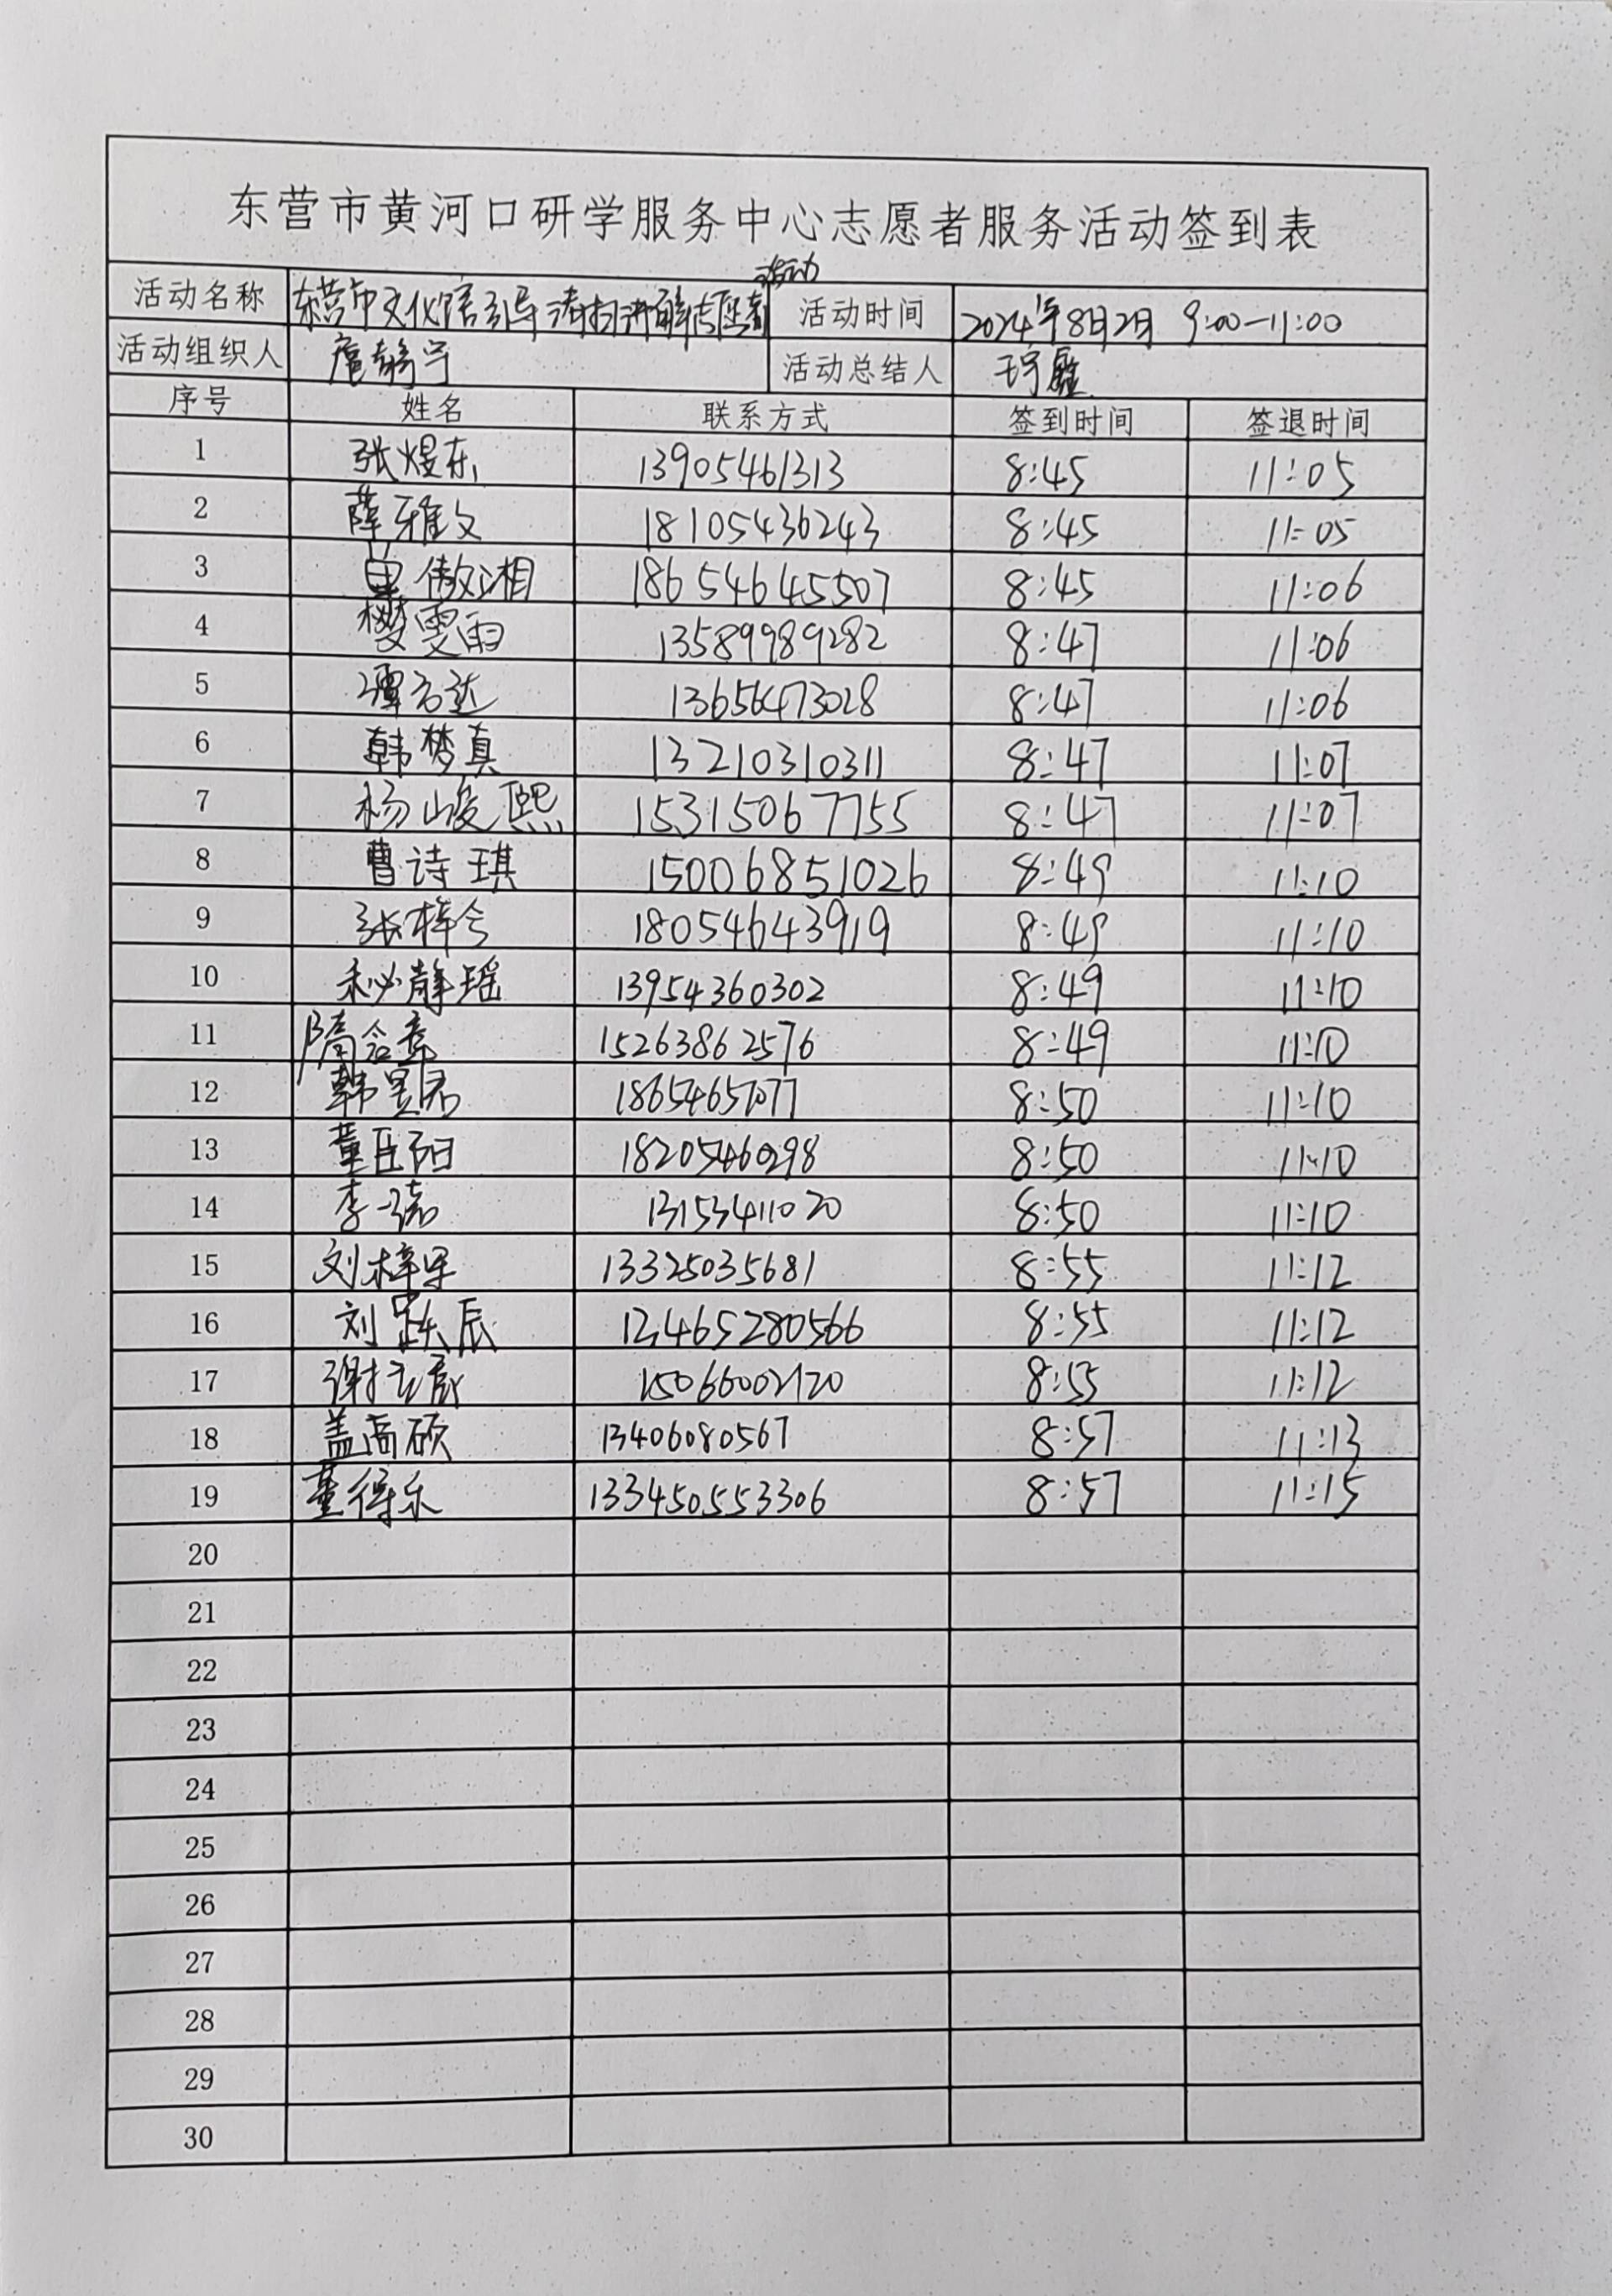 东营市黄河口研学服务中心志愿者服务活动签到表
活动
活动名称 东营市文化馆引导清扫讲解志愿者 活动时间 2024年8月2日 9:00—11:00
活动组织人 活动总结人
序号 姓名 联系方式 签到时间 签退时间
1 张煜东 13905461313 8:45 11:05
2 薛雅文 18105436243 8:45 11:05
3 单傲湘 18654645507 8:45 11:06
4 樊雯雨 13589989282 8:47 11:06
5 谭方达 13656473028 8:47 11:06
6 韩梦真 13210310311 8:47 11:07
7 杨峻熙 15315067755 8:47 11:07
8 曹诗琪 15006851026 8:49 11:10
9 张梓今 18054643919 8:49 11:10
10 秘静瑶 13954360302 8:49 11:10
11 隋含章 15263862576 8:49 11:10
12 韩昱君 18654657077 8:50 11:10
13 董臣阳 18205460298 8:50 11:10
14 李 13153411020 8:50 11:10
15 刘梓 13325035681 8:55 11:12
16 刘跃辰 8:55 11:12
17 谢 15066002120 8:55 11:12
18 盖尚硕 13406080567 8:57 11:13
19 董得乐 133450553306 8:57 11:15
20
21
22
23
24
25
26
27
28
29
30